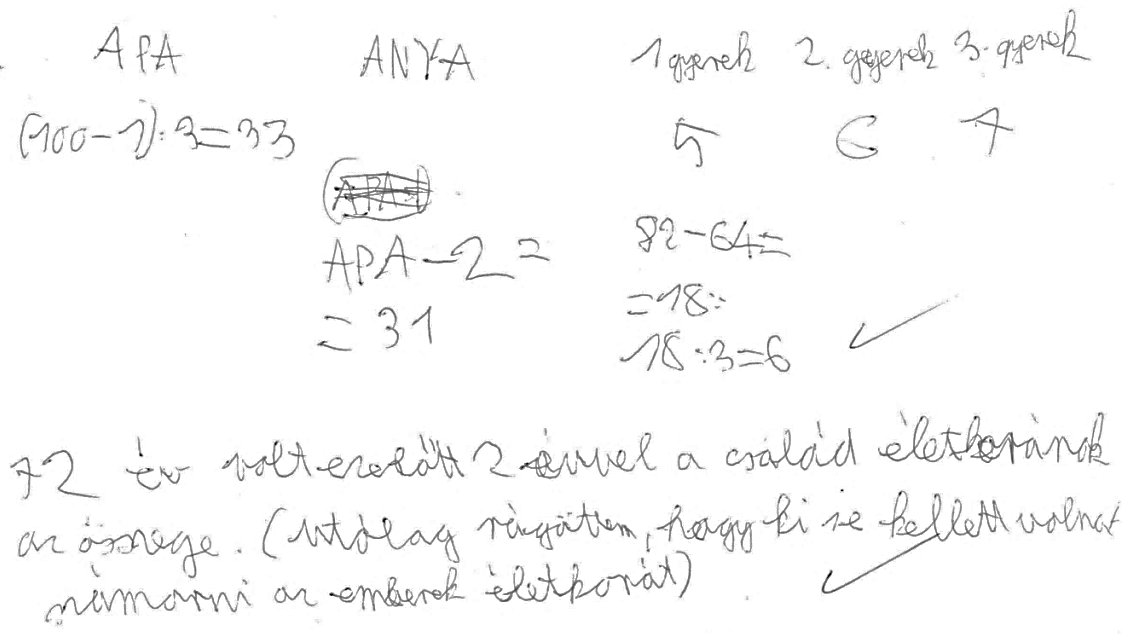 APA ANYA 1 gyerek 2. gyerek 3. gyerek
(100-1):3=33 5 6 7
APA-2= 82-64=
=31 =18=
18:3=6
72 év volt ezelőtt 2 évvel a család életkorának
az összege. (Utólag rájöttem, hogy ki se kellett volna
számorni az emberek életkorát)